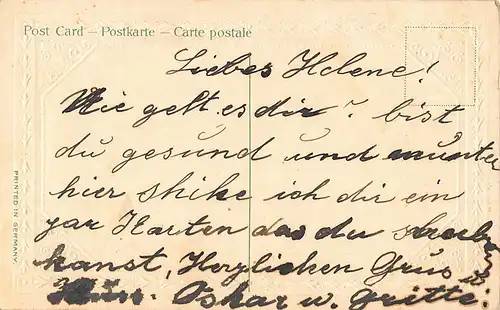 Post Card – Postkarte – Carte postale
Liebes Helene!
Wie geht es dir? bist
du gesund und munter
hier shike ich dir ein
par Karten das du schreiben
kanst, Herzlichen Grus u.
Kuss. Oskar u. Gritte.
PRINTED IN GERMANY